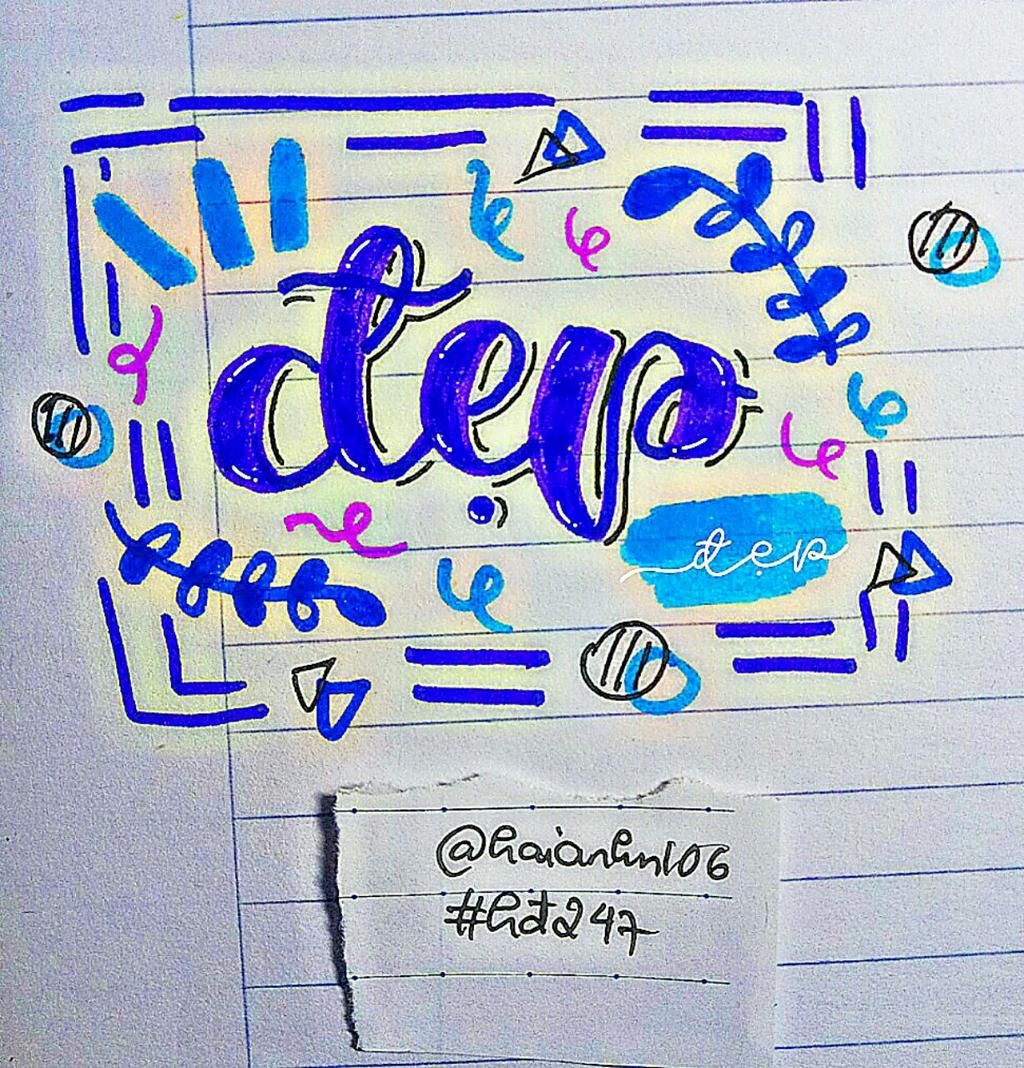 đẹp
đẹp
@haianhn106
#hđ247